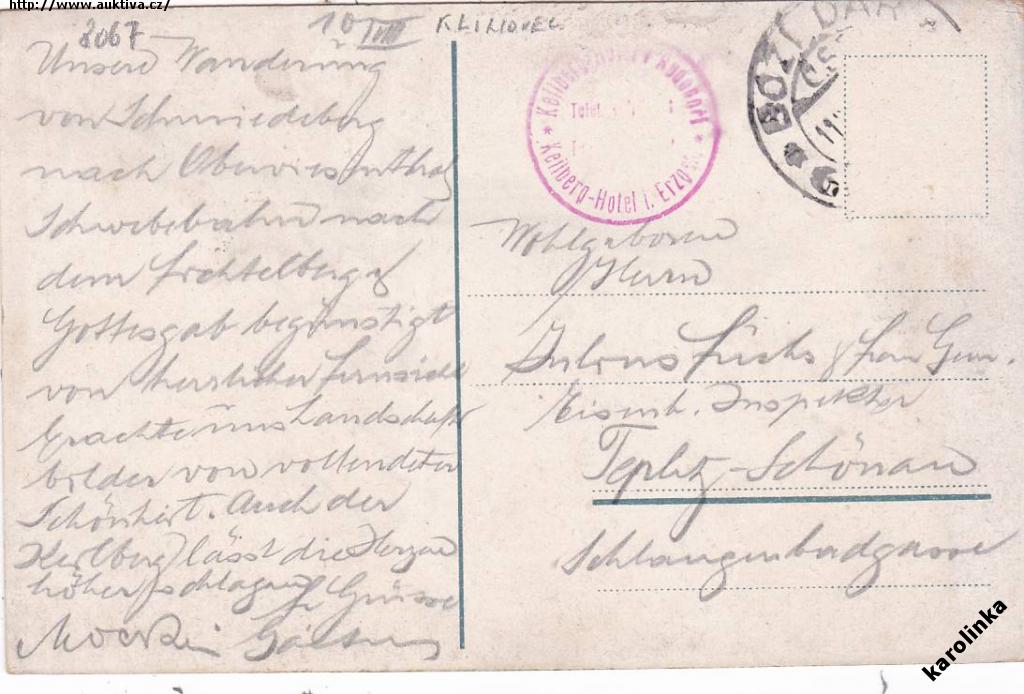 http://www.auktiva.cz/
8067
10 VIII
KLINOVEC
Unsere Wanderung
von Schmiedeberg
nach Oberwiesenthal
Schwebebahn nach
dem Fichtelberg
Gottesgab begünstigt
von herrlicher Fernsicht
brachte uns Landschafts
bilder von vollendeter
Schönheit. Auch der
Keilberg lässt die Herzen
höher schlagen
Grüsse
Keilberg-Hotel i. Erzgeb.
BOŽÍ DAR
Wohlgeboren
Herrn
Fuchs & Frau Gem.
Eisenb. Inspektor
Teplitz-Schönau
Schlangenbadgasse
karolinka